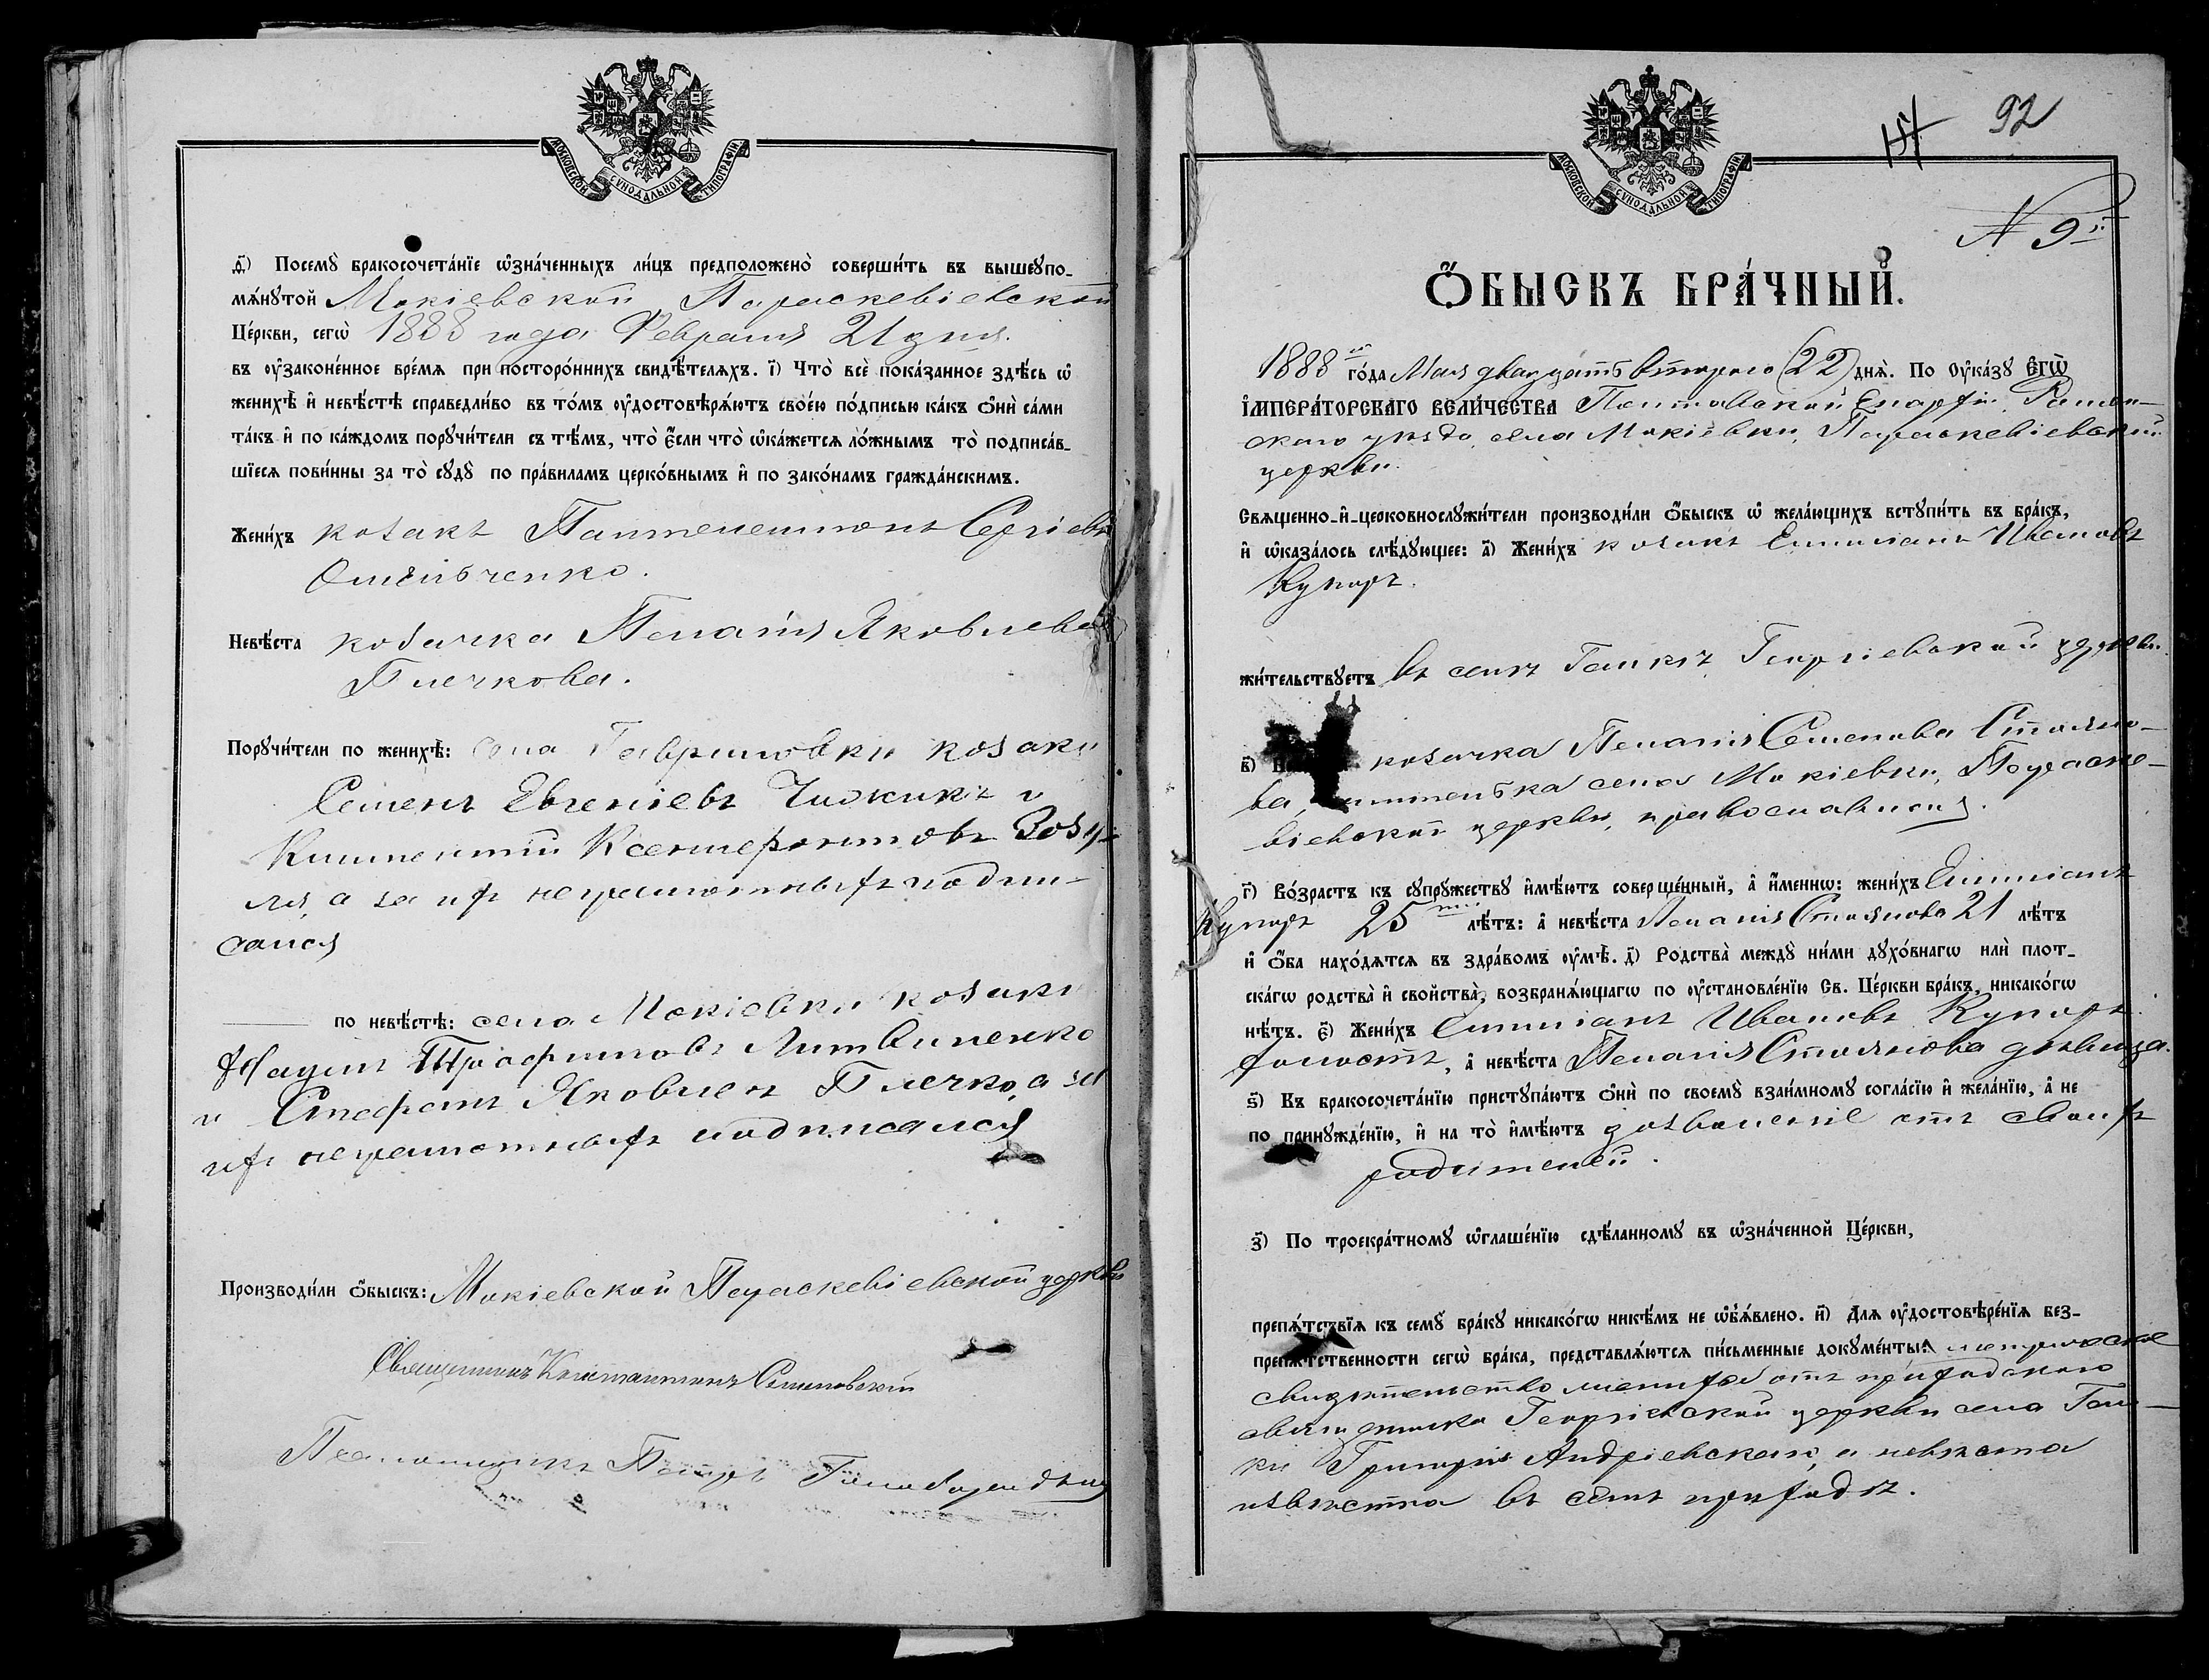 МОСКОВСКОЙ СУНОДАЛЬНОЙ ТИПОГРАФІИ
ѳ҃) Посемꙋ̀ бракосочета́нїе ѡ҆зна́ченныхъ ли́цъ предположено̀ соверши́ть въ вышеꙋпо-
мѧ́нꙋтой Мокіевской Параскевіевской
Це́ркви, сегѡ̀ 1888 года Февраля 21 дня.
въ ᲂу҆законе́нное вре́мѧ при посторо́ннихъ свидѣ́телѧхъ. і҃) Что̀ всѐ пока́занное здѣ́сь ѡ҆
женихѣ̀ и҆ невѣ́стѣ справедли́во въ то́мъ ᲂу҆достовѣрѧ́ютъ свое́ю по́дписью ка́къ ѻ҆нѝ са́ми
та́къ и҆ по ка́ждомъ порꙋчи́тели съ тѣ́мъ, что̀ є҆́сли что̀ ѡ҆ка́жетсѧ ло́жнымъ то̀ подписа́в-
шїесѧ пови́нны за то̀ сꙋдꙋ̀ по пра́виламъ церко́внымъ и҆ по зако́намъ гражда́нскимъ.
Жени́хъ козакъ Пантелеимонъ Сергіевъ
Омельченко.
Невѣ́ста козачка Пелагія Яковлева
Плечкова.
Порꙋчи́тели по женихѣ̀: села Гавриловки козаки
Семенъ Евгеніевъ Чижикъ и
Климентій Ксенофонтовъ Зозу-
ля, а за ихъ неграмотныхъ подпи-
сался
по невѣ́стѣ: села Мокіевки козаки
Трофимовъ Литвиненко
и Стефанъ Яковлевъ Плечко, а за
ихъ неграмотныхъ подписался
Производи́ли ѻ҆́быскъ: Мокіевской Параскевіевской церкви
Священникъ Константинъ Семеновскій
Псаломщикъ Петръ
МОСКОВСКОЙ СУНОДАЛЬНОЙ ТИПОГРАФІИ
92
N 9й
Ѻ҆́БЫСКЪ БРА́ЧНЫЙ.
1888го го́да Мая двадцать втораго (22) днѧ̀. По Оу҆ка́зꙋ Є҆гѡ̀
І҆МПЕРА́ТОРСКАГО ВЕЛИ́ЧЕСТВА Полтавской Епархіи, Ромен-
скаго уѣзда, села Мокіевки, Параскевіевской
церкви.
Свѧщенно-и҆-церковнослꙋжи́тели производи́ли ѻ҆́быскъ ѡ҆ жела́ющихъ встꙋпи́ть въ бра́къ,
и҆ ѡ҆каза́лось слѣ́дꙋющее: а҃) Жени́хъ козакъ Емиліанъ Ивановъ
Купорь.
жи́тельствꙋетъ въ селѣ Галкѣ, Георгіевской церкви.
в҃) козачка Пелагія Семенова Стояно-
ва, жителька села Мокіевки, Параске-
віевской церкви, православная.
г҃) Во́зрастъ къ сꙋпрꙋ́жествꙋ и҆мѣ́ютъ соверше́нный, а҆ и҆́менно: жени́хъ Емиліанъ
Купорь 25ти лѣ́тъ: а҆ невѣ́ста Пелагія Стоянова 21 лѣ́тъ
и҆ ѻ҆́ба нахо́дѧтсѧ въ здра́вомъ ᲂу҆мѣ̀. д҃) Родства̀ междꙋ̀ ни́ми дꙋхо́внагѡ илѝ плот-
ска́гѡ родства̀ и҆ свойства̀, возбранѧ́ющагѡ по ᲂу҆становле́нїю Св. Це́ркви бра́къ, никако́гѡ
нѣ́тъ. є҃) Жени́хъ Емиліанъ Ивановъ Купорь
холостъ, а҆ невѣ́ста Пелагія Стоянова дѣвица.
ѕ҃) Къ бракосочета́нїю пристꙋпа́ютъ ѻ҆нѝ по своемꙋ̀ взаи́мномꙋ согла́сїю и҆ жела́нїю, а҆ не
по принꙋжде́нїю, и҆ на то̀ и҆мѣ́ютъ дозволеніе отъ своихъ
родителей.
з҃) По троекра́тномꙋ ѡ҆глаше́нїю сдѣ́ланномꙋ въ ѡ҆зна́ченной Це́ркви,
препѧ́тствїѧ къ семꙋ̀ бра́кꙋ никако́гѡ никѣ́мъ не ѡ҆б̾ѧ́влено. и҃) Длѧ ᲂу҆достовѣре́нїѧ без-
препѧ́тственности сегѡ̀ бра́ка, представлѧ́ютсѧ пи́сьменные докꙋме́нты: метрическое
свидѣтельство жениха отъ приходскаго
священника Георгіевской церкви села Гал-
ки Григорія Андріевскаго, а невѣста
извѣстна въ семъ приходѣ.